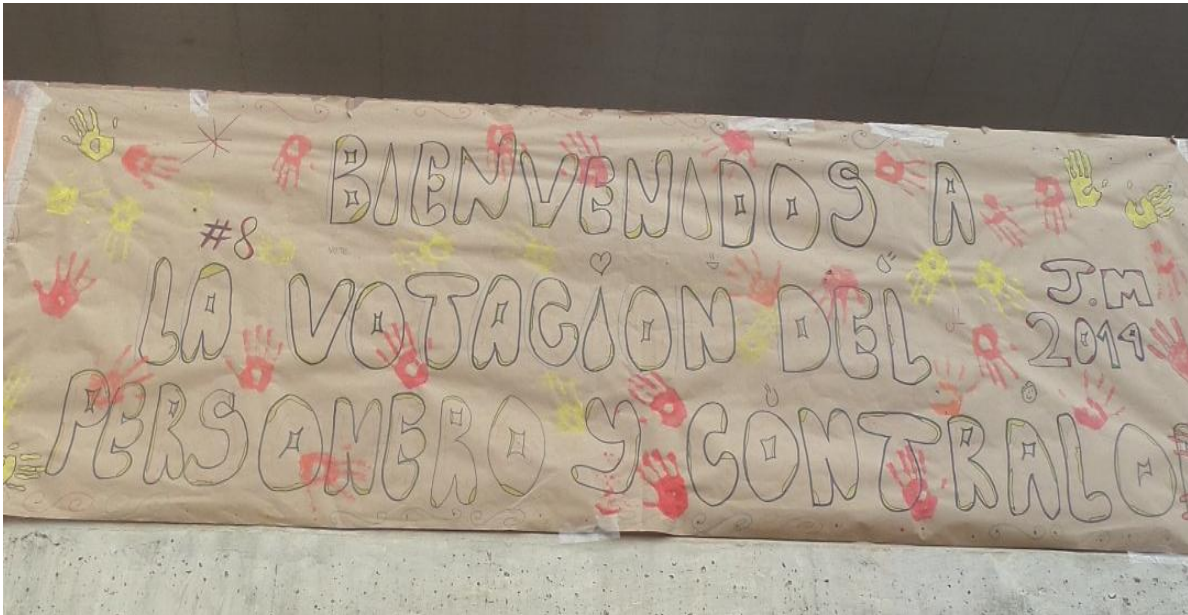 BIENVENIDOS A
#8
LA VOTACION DEL
J.M
2019
PERSONERO Y CONTRALO